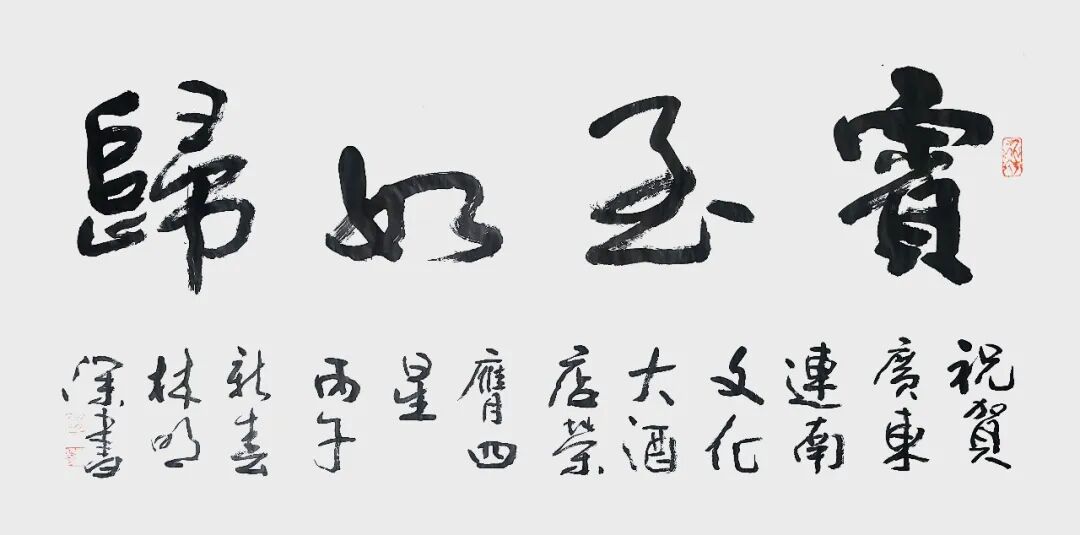 賓至如歸
祝賀
廣東
連南
文化
大酒
店榮
膺四
星
丙午
新春
林明
深書